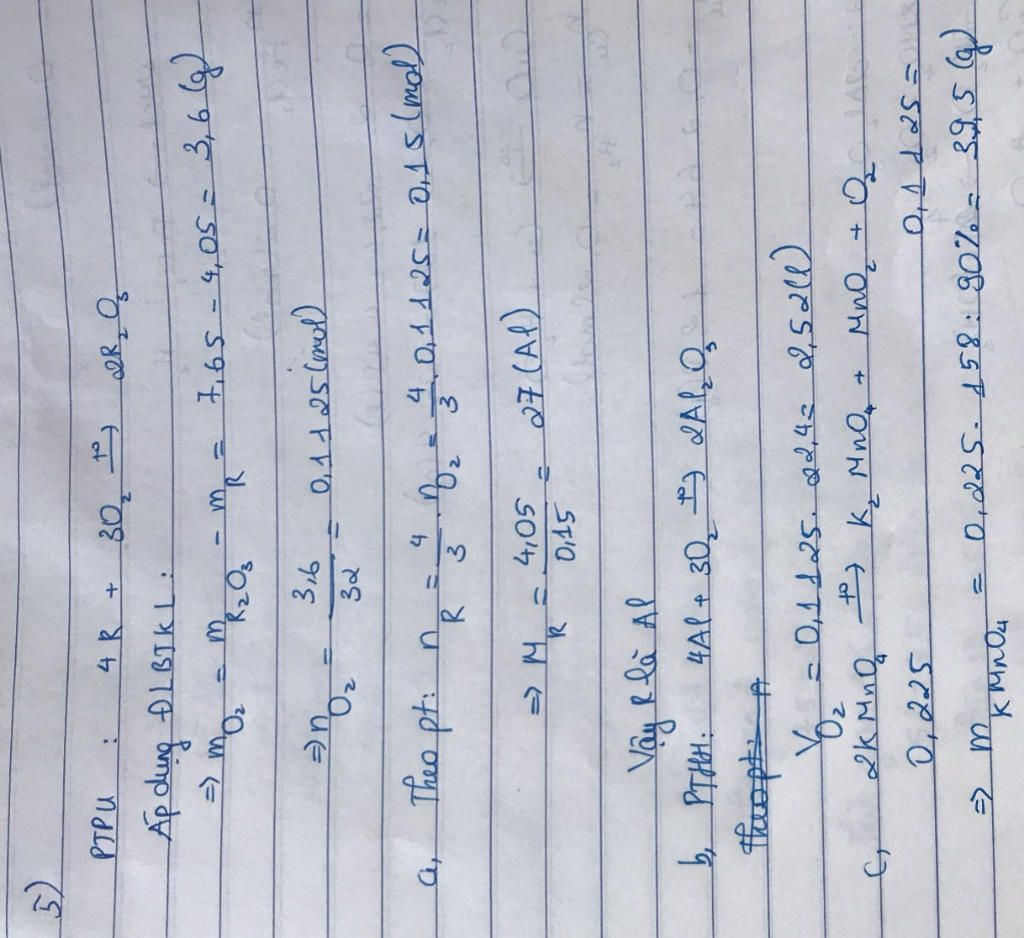 5)
PTPU : 4R + 3O₂ —t°→ 2R₂O₃
Áp dụng ĐLBTKL:
=> m O₂ = m R₂O₃ - m R = 7,65 - 4,05 = 3,6 (g)
=> n O₂ = 3,6/32 = 0,1125 (mol)
a, Theo pt: n R = 4/3 . n O₂ = 4/3 . 0,1125 = 0,15 (mol)
=> M R = 4,05/0,15 = 27 (Al)
Vậy R là Al
b, PTHH: 4Al + 3O₂ —t°→ 2Al₂O₃
Theo pt: A
V O₂ = 0,1125 . 22,4 = 2,52 (l)
c, 2KMnO₄ —t°→ K₂MnO₄ + MnO₂ + O₂
0,225 0,1125 =
=> m KMnO₄ = 0,225 . 158 : 90% = 39,5 (g)